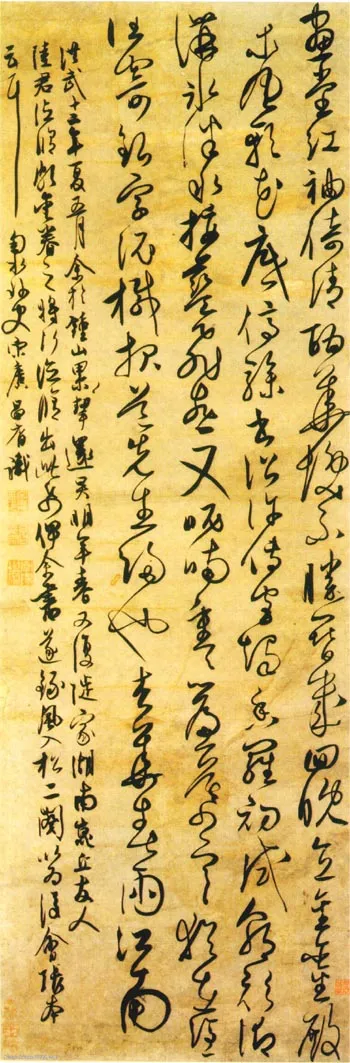 畫堂紅袖倚清酣華髮不勝簪幾回晚直金鑾殿
東風軟花底停驂書詔許傳宮燭香羅初試朝衫御
溝冰泮水挼藍飛燕又呢喃重重簾幕寒猶在憑
誰寄銀字泥緘報道先生歸也杏花春雨江南
洪武十三年夏五月余於鍾山還吳明年春又復徙家湖南友人
陸君將行出此俾余書遂錄風入松二闋以為後會張本
云耳 宋廣昌裔識